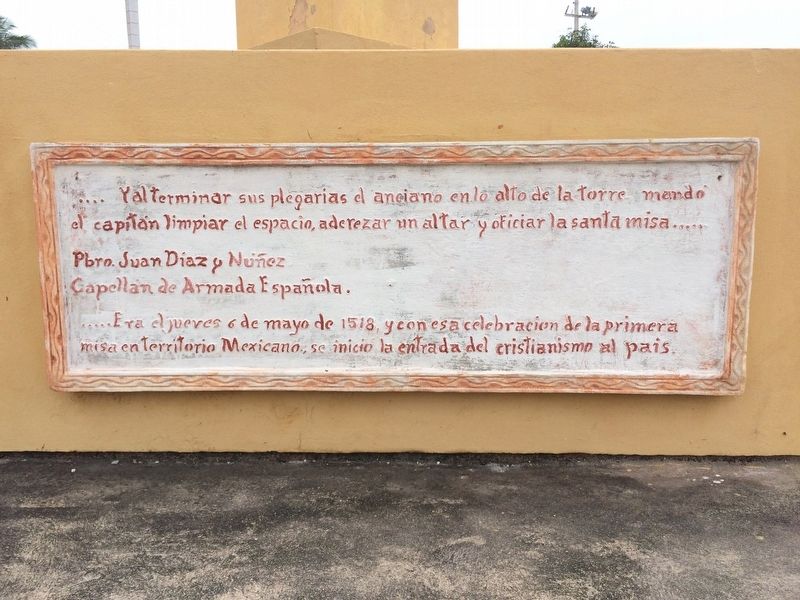 .... Y al terminar sus plegarias el anciano en lo alto de la torre mando
el capitán limpiar el espacio, aderezar un altar y oficiar la santa misa.....
Pbro. Juan Díaz y Nuñez
Capellán de Armada Española.
.....Era el jueves 6 de mayo de 1518, y con esa celebracion de la primera
misa en territorio Mexicano., se inicio la entrada del cristianismo al pais.